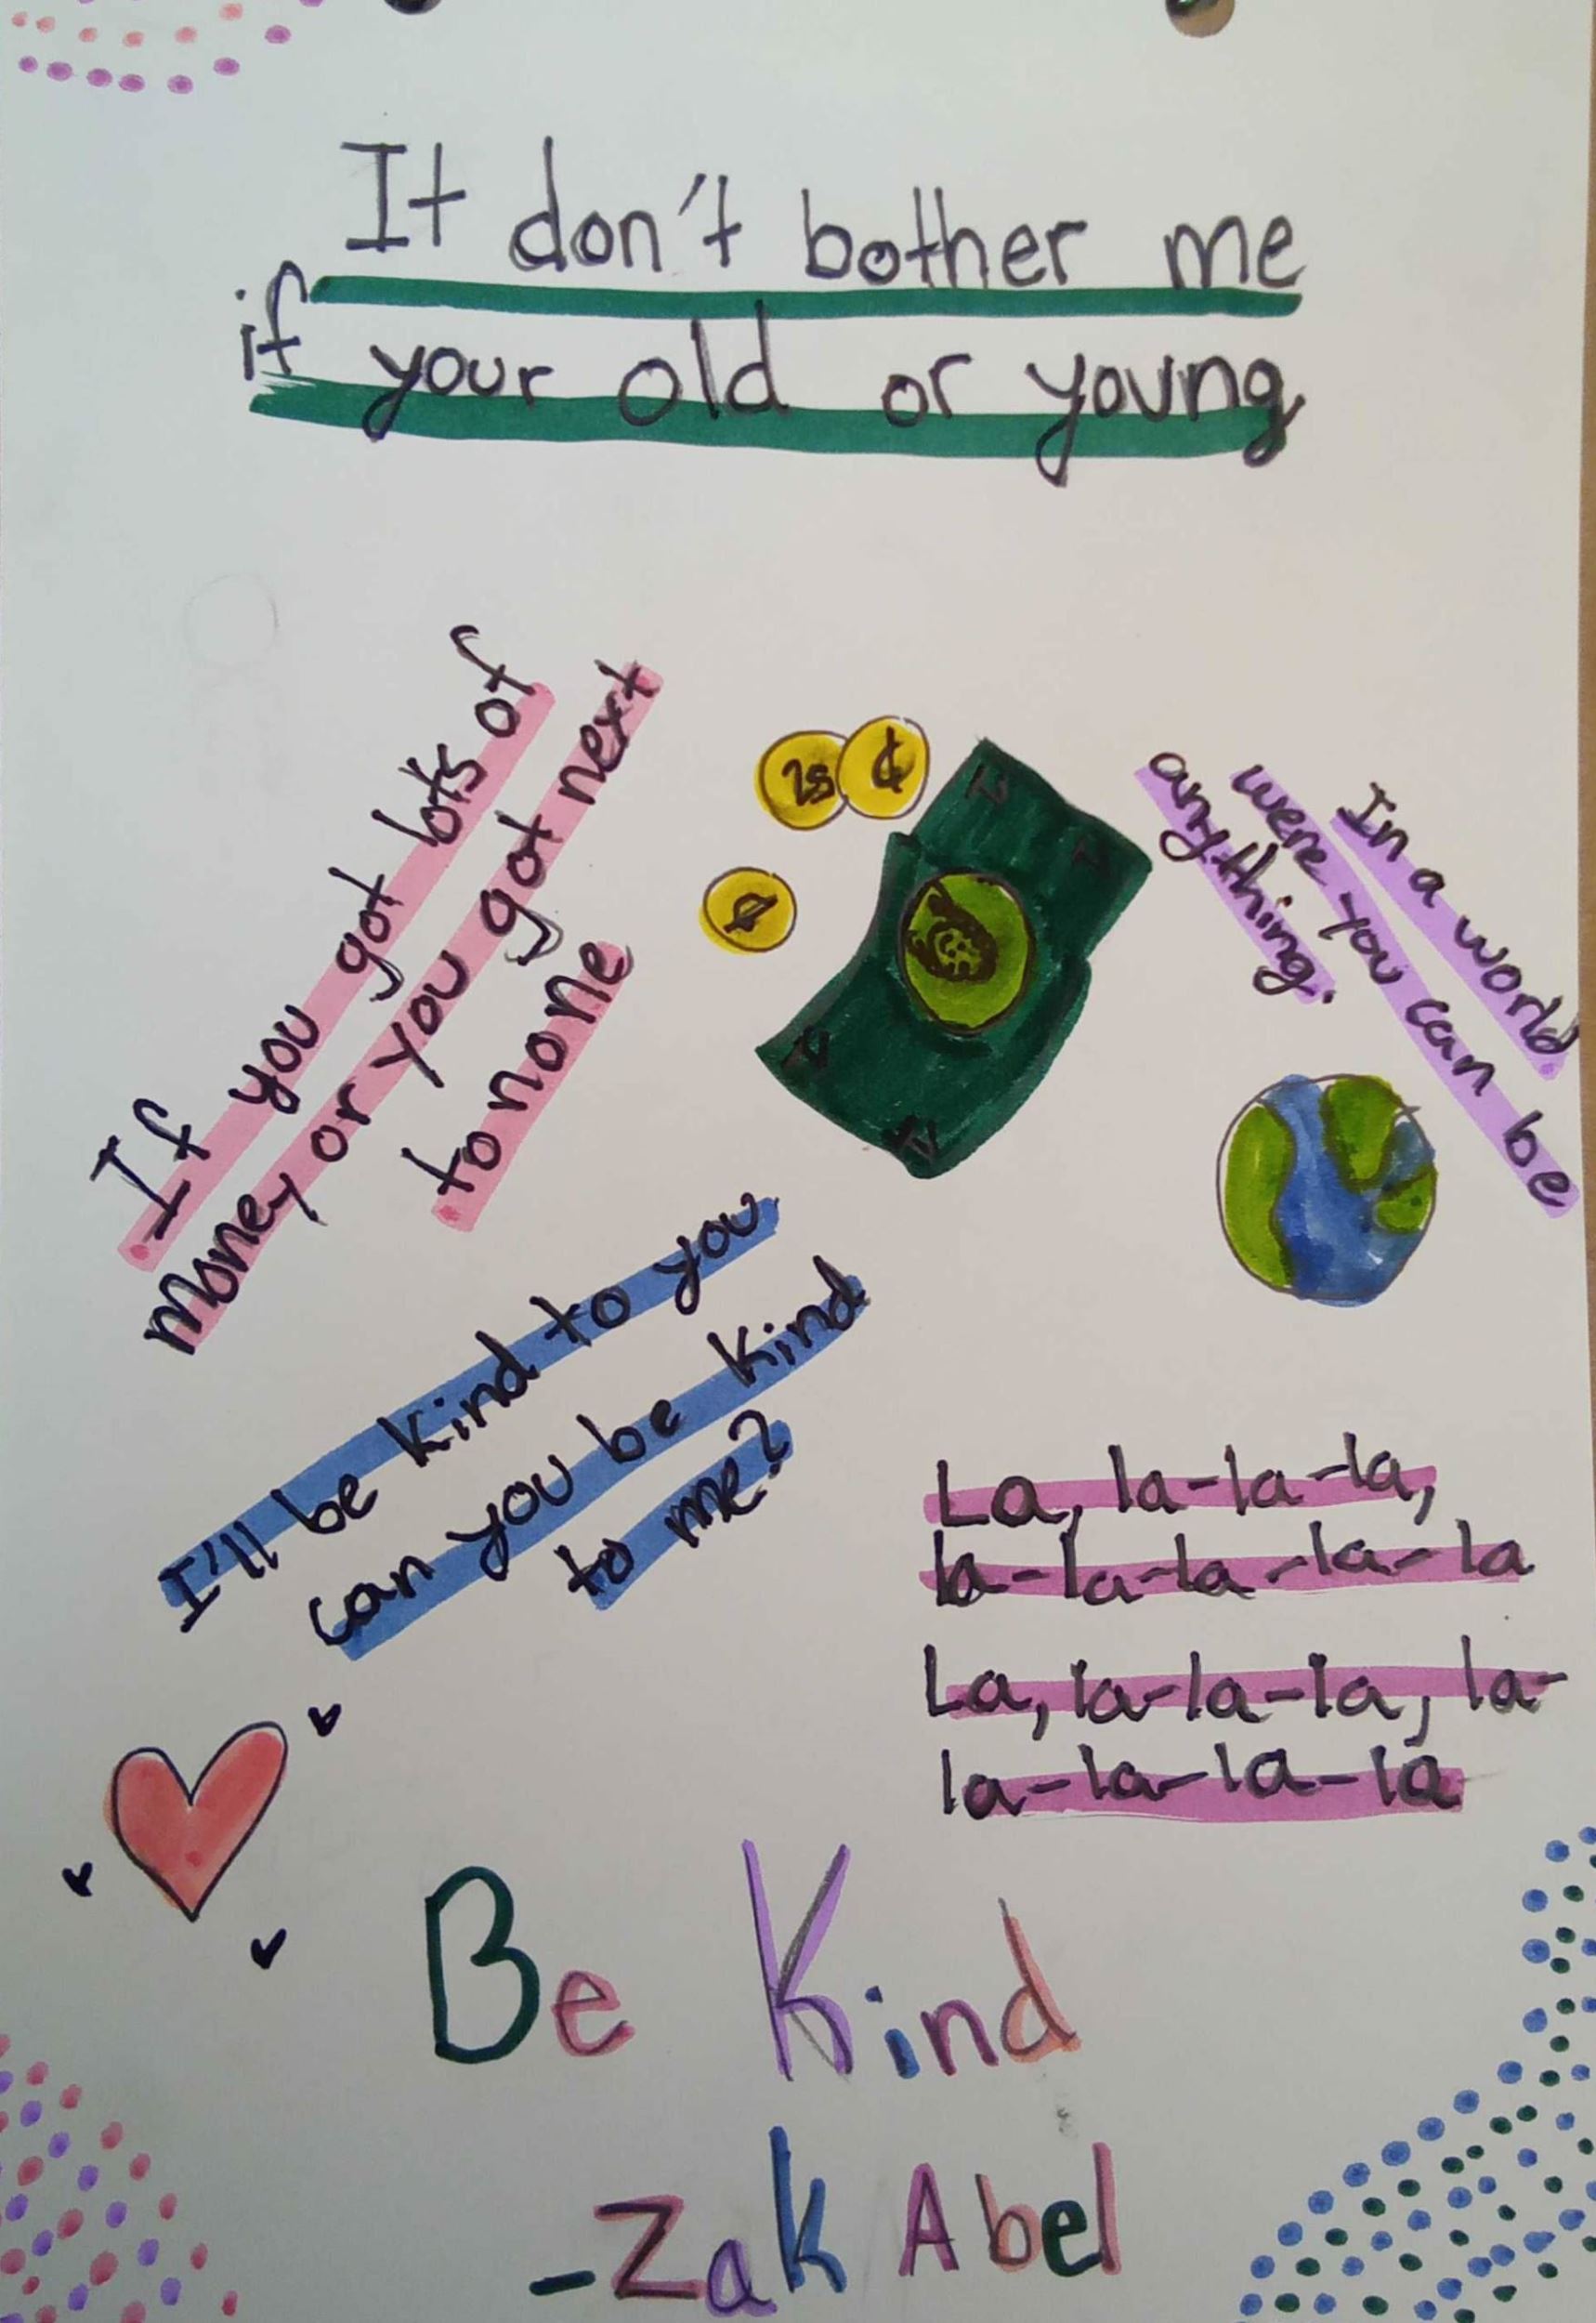 It don't bother me
if your old or young
If you got lots of
money or you got next
to none
25 ¢
¢
In a world
were you can be
anything.
I'll be kind to you
can you be kind
to me?
La, la-la-la,
la-la-la-la-la
La, la-la-la, la-
la-la-la-la
Be Kind
-Zak Abel